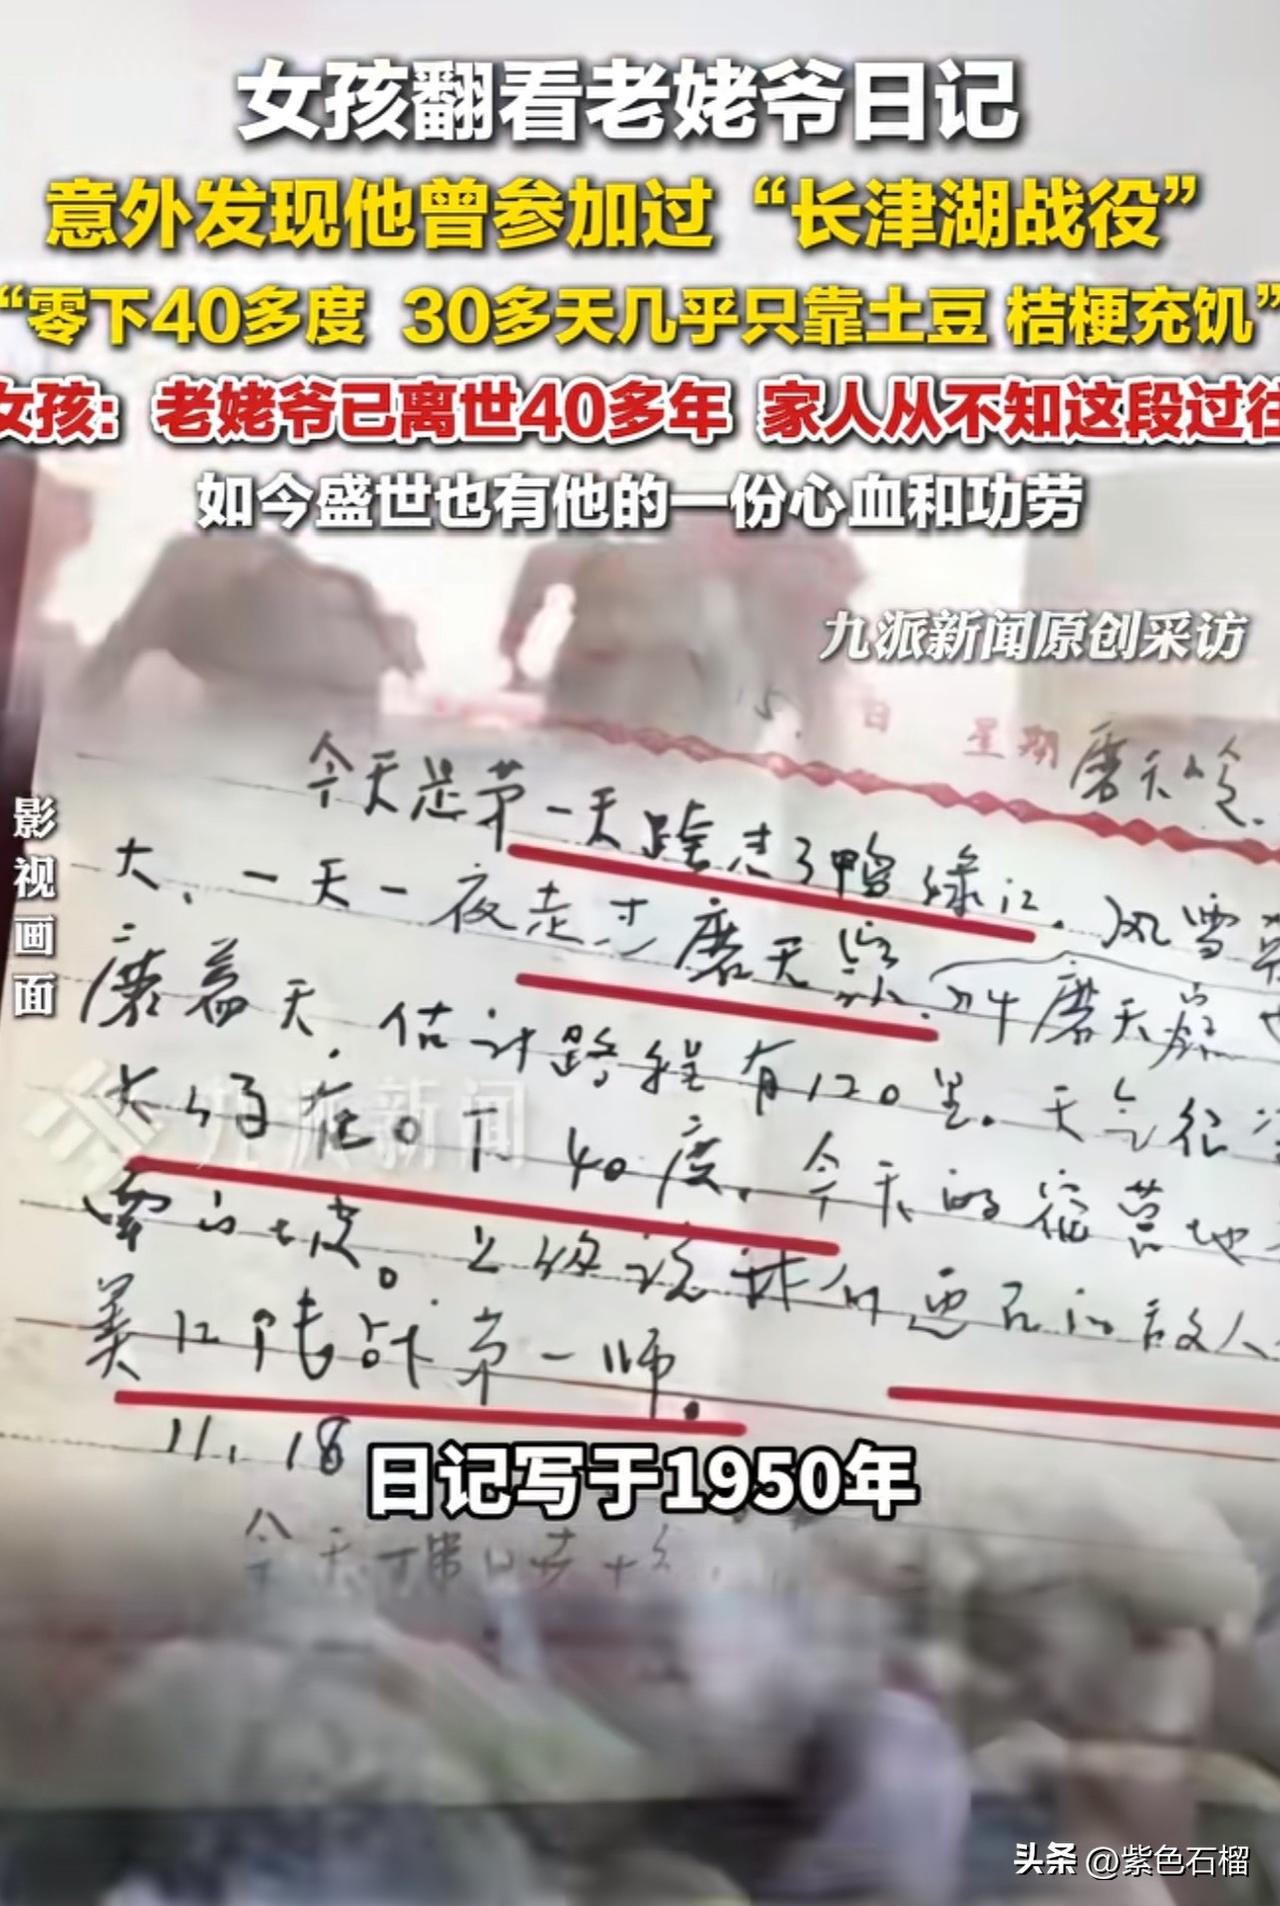 女孩翻看老姥爷日记
意外发现他曾参加过“长津湖战役”
“零下40多度 30多天几乎只靠土豆 桔梗充饥”
女孩：老姥爷已离世40多年 家人从不知这段过往
如今盛世也有他的一份心血和功劳
九派新闻原创采访
日 星期
影视画面
今天是第一天踏志了鸭绿江．风雪
大、一天一夜走过磨天岭
天，估计路程有120里。天气很冷
在0下40度，今天的宿营地
上级说我们面
美 陆战第一师。
11.18
九派新闻
日记写于1950年
今天
头条 @紫色石榴